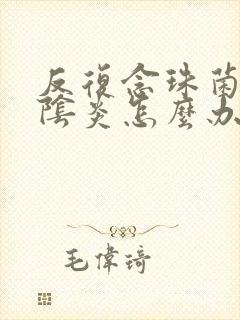 反復念珠菌
陰炎怎麼办
毛偉琦